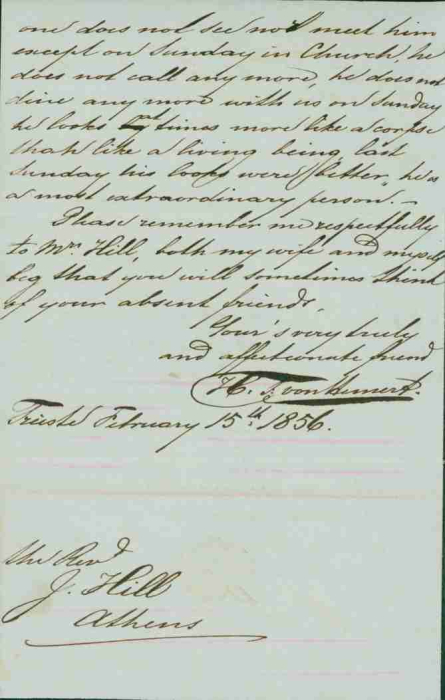 one does not see nor meet him
except on Sunday in Church, he
does not call any more, he does not
dine any more with us on Sunday
he looks at times more like a corpse
than like a living being, last
Sunday his looks were better, he is
a most extraordinary person. —
Please remember me respectfully
to Mrs. Hill, both my wife and myself
beg that you will sometimes think
of your absent friends,
Your's very truly
and affectionate friend
H. van Hemert.
Trieste February 15th 1856.
the Revd
J. Hill
Athens